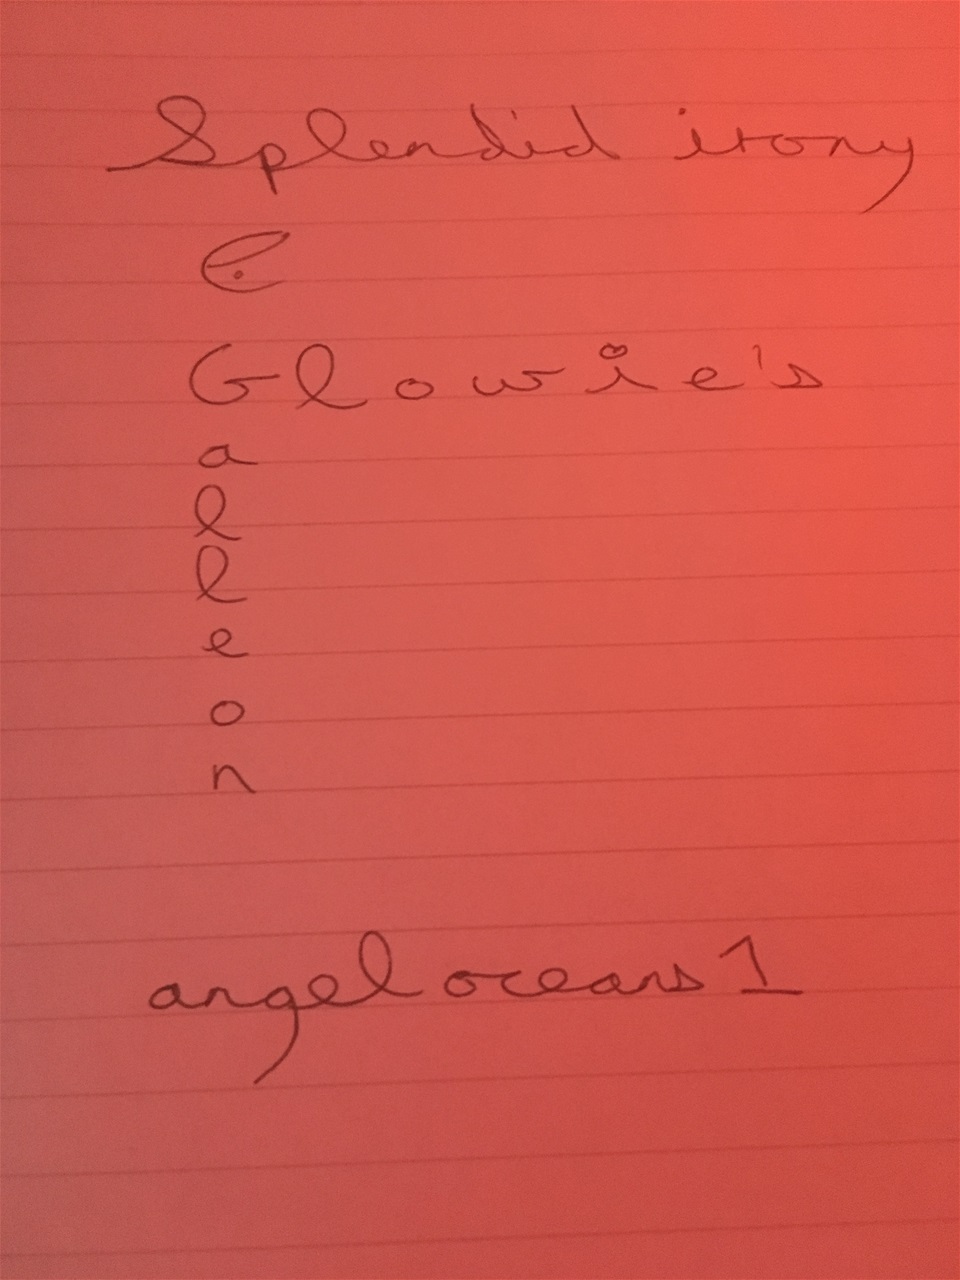 Splendid irony
Glowie's
a
l
l
e
o
n
angeloceans1